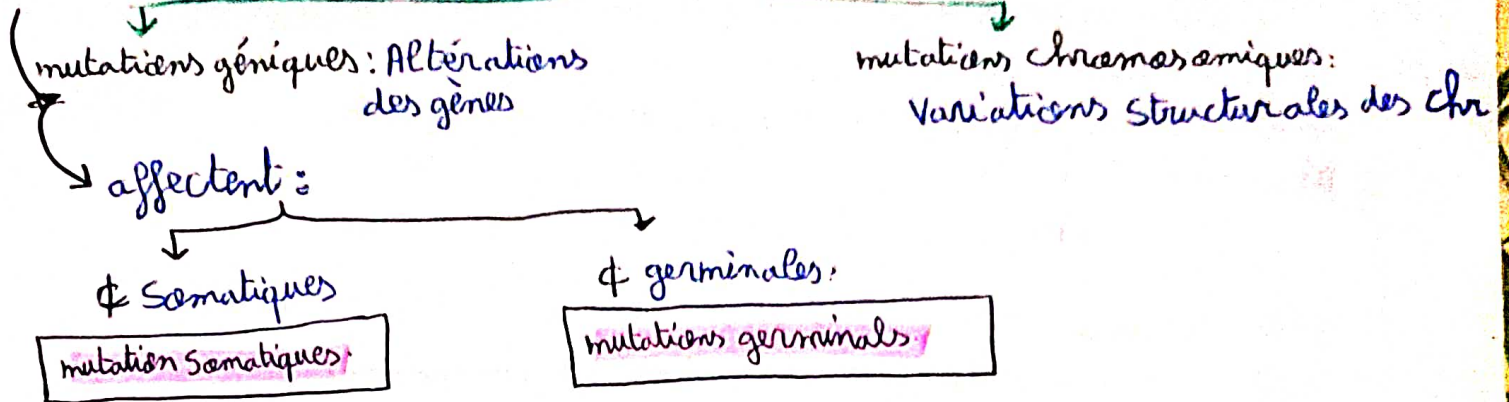 mutations géniques: Altérations
des gènes
mutations chromosomiques:
Variations structurales des chr
affectent :
¢ Somatiques
¢ germinales.
mutation Somatiques.
mutations germinals.